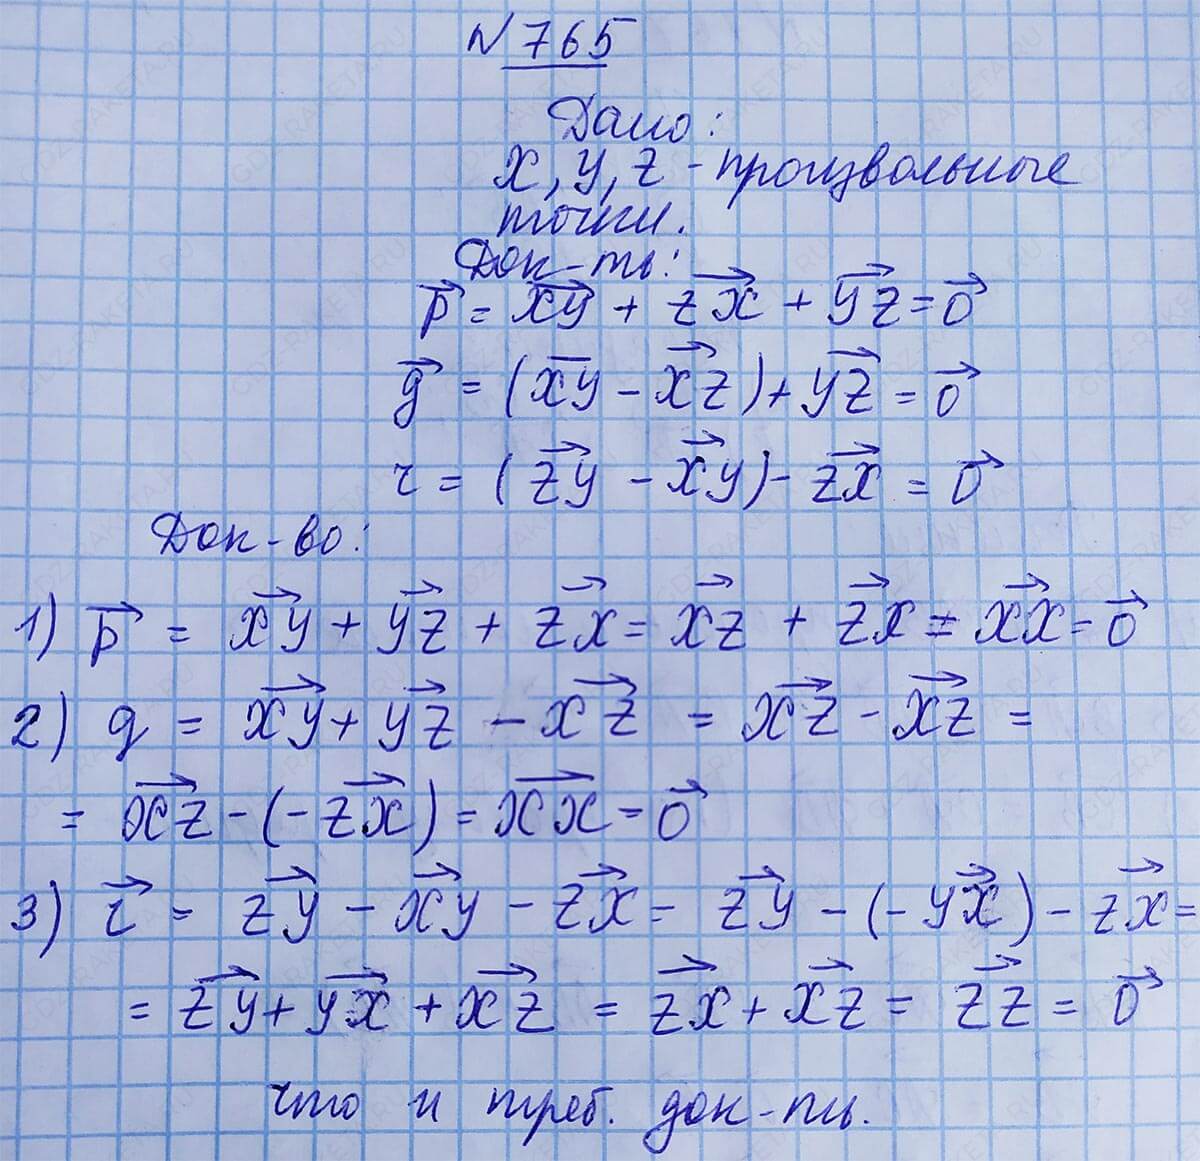 N 765
Дано:
x, y, z - произвольные
точки.
Док-ть:
p⃗ = x⃗y⃗ + z⃗x⃗ + y⃗z⃗ = 0⃗
g⃗ = (x̅y̅ - x⃗z⃗) + y⃗z⃗ = 0⃗
r = (z⃗y⃗ - x⃗y⃗) - z⃗x⃗ = 0⃗
Док-во:
1) p⃗ = x⃗y⃗ + y⃗z⃗ + z⃗x⃗ = x⃗z⃗ + z⃗x⃗ = x⃗x⃗ = 0⃗
2) g = x⃗y⃗ + y⃗z⃗ - x⃗z⃗ = x⃗z⃗ - x⃗z⃗ =
= x⃗z⃗ - (-z⃗x⃗) = x⃗x⃗ = 0⃗
3) r⃗ = z⃗y⃗ - x⃗y⃗ - z⃗x⃗ = z⃗y⃗ - (-y⃗x⃗) - z⃗x⃗ =
= z⃗y⃗ + y⃗x⃗ + x⃗z⃗ = z⃗x⃗ + x⃗z⃗ = z⃗z⃗ = 0⃗
что и треб. док-ть.